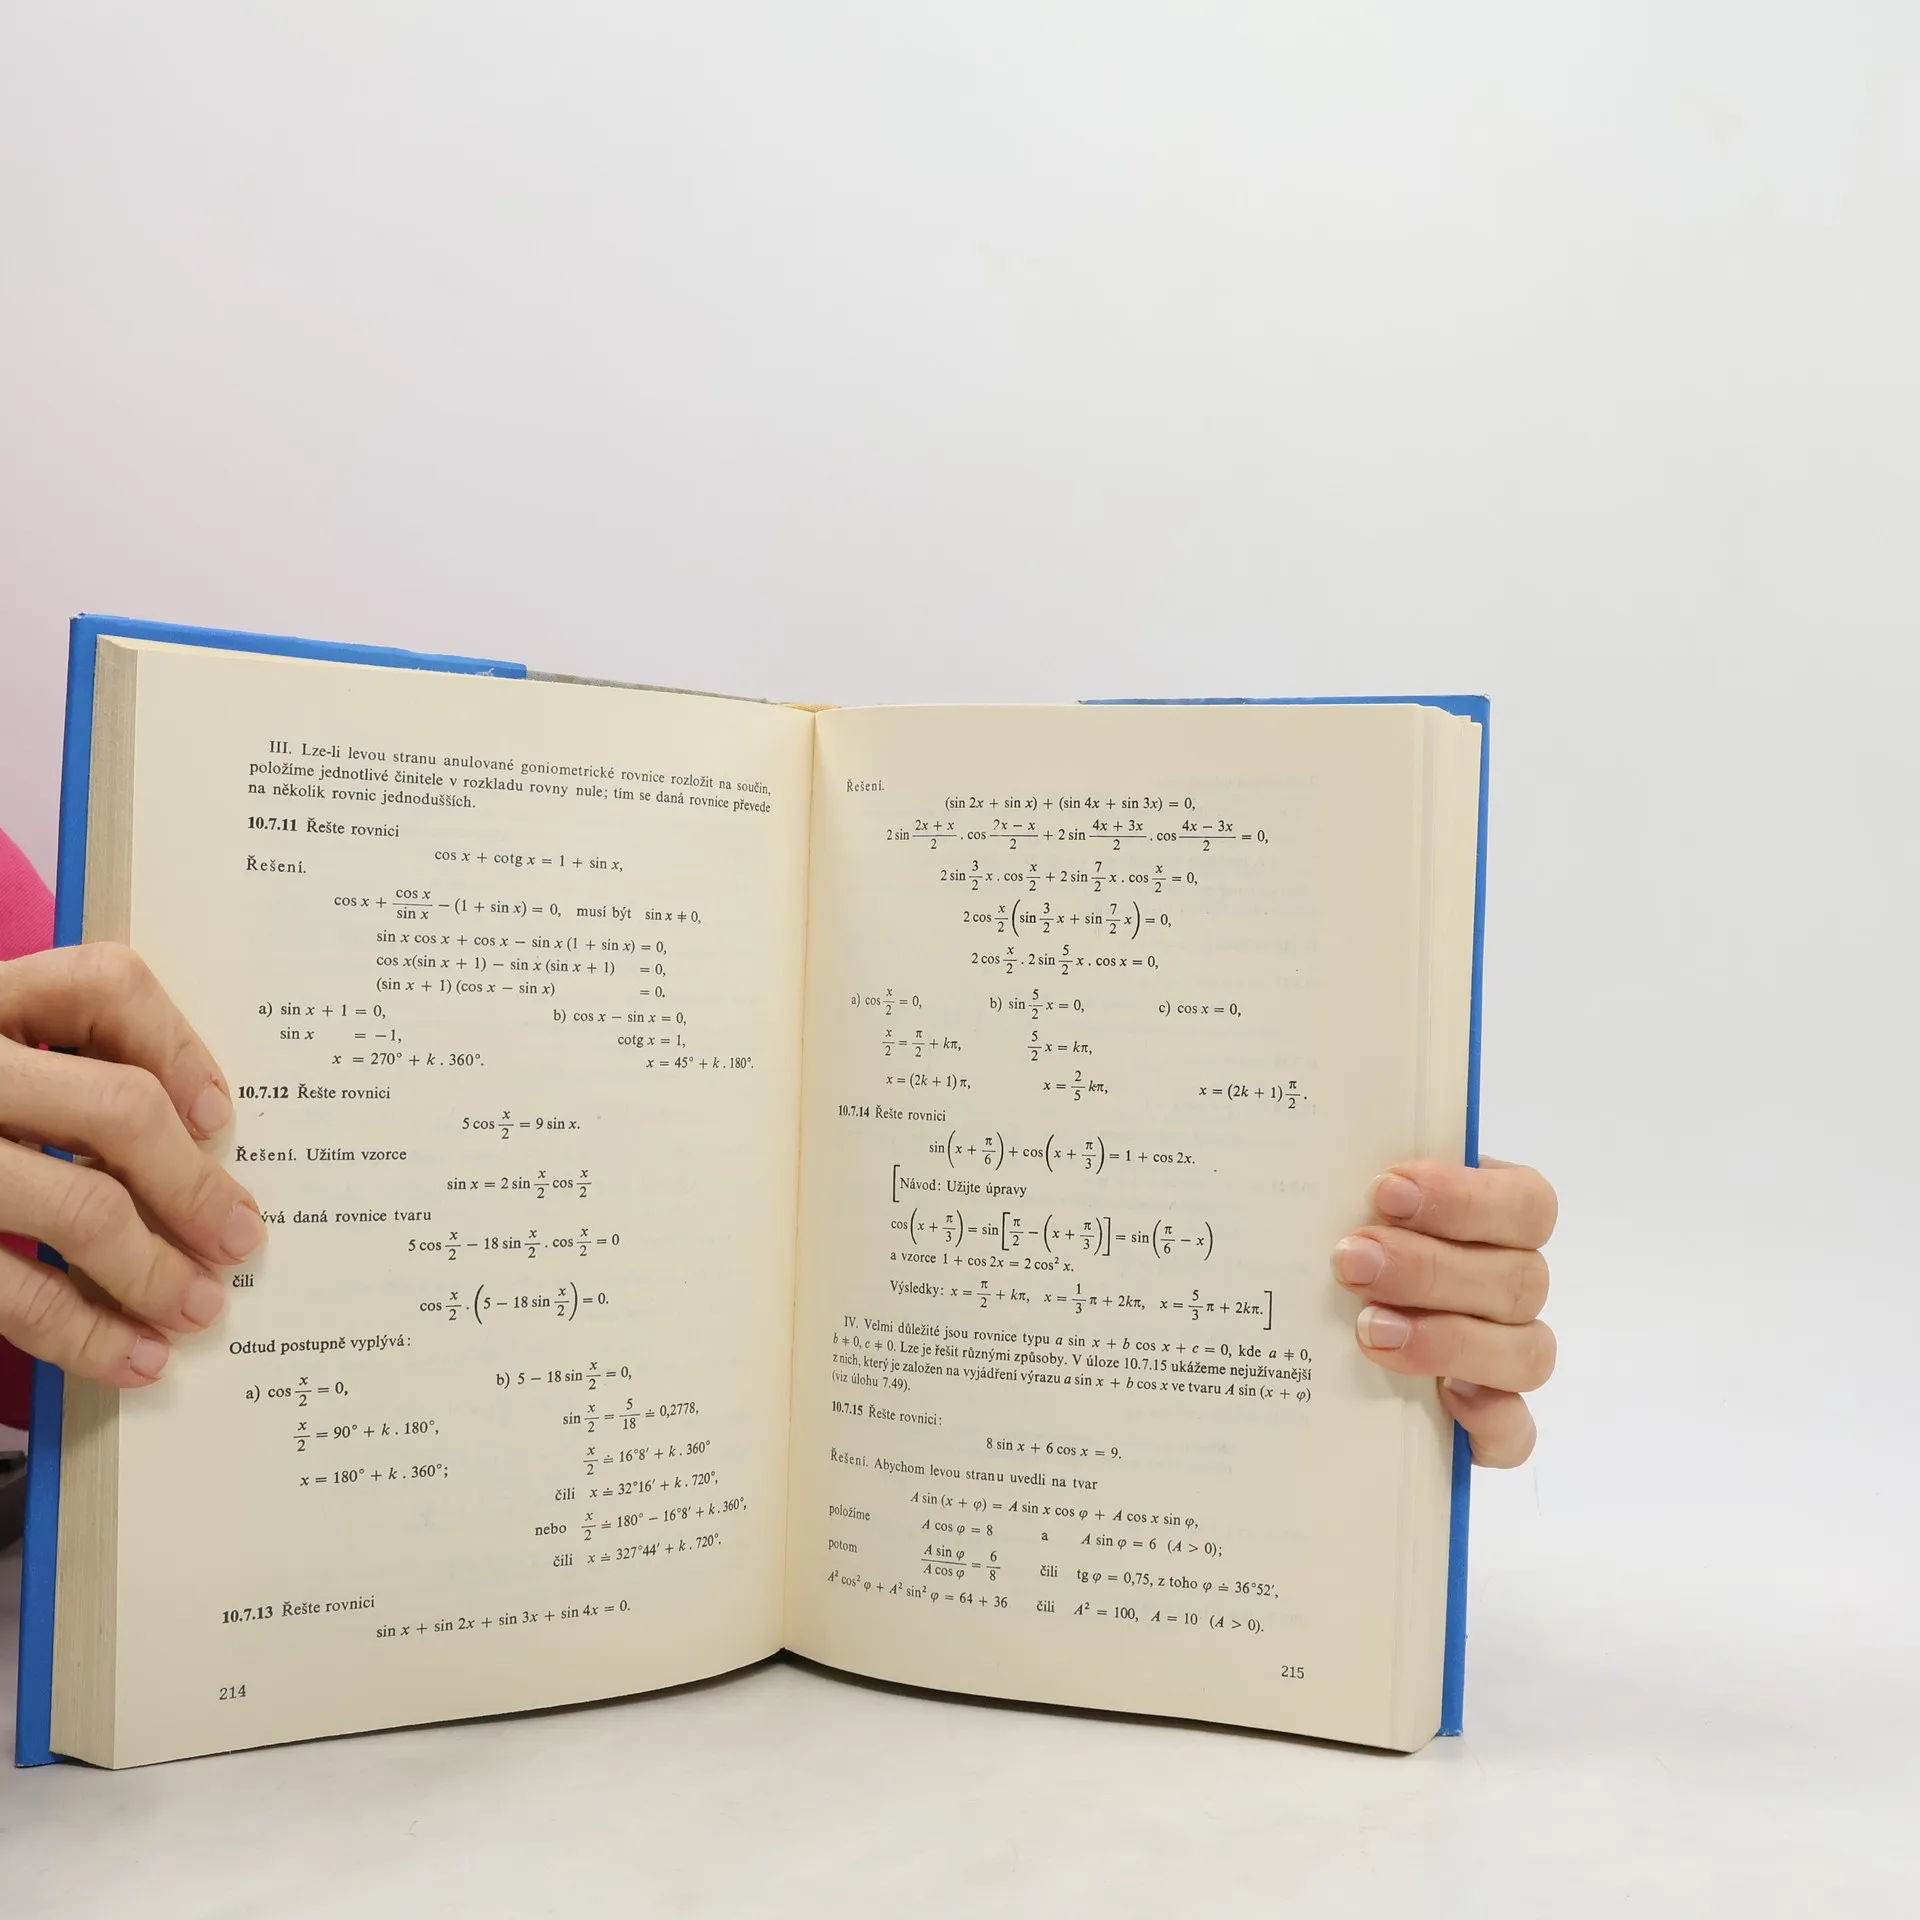 III. Lze-li levou stranu anulované goniometrické rovnice rozložit na součin,
položíme jednotlivé činitele v rozkladu rovny nule; tím se daná rovnice převede
na několik rovnic jednodušších.
10.7.11 Řešte rovnici
cos x + cotg x = 1 + sin x,
Řešení.
cos x + cos x / sin x − (1 + sin x) = 0, musí být sin x ≠ 0,
sin x cos x + cos x − sin x (1 + sin x) = 0,
cos x(sin x + 1) − sin x (sin x + 1) = 0,
(sin x + 1) (cos x − sin x) = 0.
a) sin x + 1 = 0, b) cos x − sin x = 0,
sin x = −1, cotg x = 1,
x = 270° + k . 360°. x = 45° + k . 180°.
10.7.12 Řešte rovnici
5 cos x/2 = 9 sin x.
Řešení. Užitím vzorce
sin x = 2 sin x/2 cos x/2
daná rovnice tvaru
5 cos x/2 − 18 sin x/2 . cos x/2 = 0
čili
cos x/2 . (5 − 18 sin x/2) = 0.
Odtud postupně vyplývá:
a) cos x/2 = 0, b) 5 − 18 sin x/2 = 0,
sin x/2 = 5/18 ≐ 0,2778,
x/2 = 90° + k . 180°, x/2 ≐ 16°8′ + k . 360°
x = 180° + k . 360°; čili x ≐ 32°16′ + k . 720°,
nebo x/2 ≐ 180° − 16°8′ + k . 360°,
čili x ≐ 327°44′ + k . 720°.
10.7.13 Řešte rovnici
sin x + sin 2x + sin 3x + sin 4x = 0.
214
Řešení.
(sin 2x + sin x) + (sin 4x + sin 3x) = 0,
2 sin (2x + x)/2 . cos (2x − x)/2 + 2 sin (4x + 3x)/2 . cos (4x − 3x)/2 = 0,
2 sin 3/2 x . cos x/2 + 2 sin 7/2 x . cos x/2 = 0,
2 cos x/2 (sin 3/2 x + sin 7/2 x) = 0,
2 cos x/2 . 2 sin 5/2 x . cos x = 0,
a) cos x/2 = 0, b) sin 5/2 x = 0, c) cos x = 0,
x/2 = π/2 + kπ, 5/2 x = kπ,
x = (2k + 1) π, x = 2/5 kπ, x = (2k + 1) π/2 .
10.7.14 Řešte rovnici
sin (x + π/6) + cos (x + π/3) = 1 + cos 2x.
[Návod: Užijte úpravy
cos (x + π/3) = sin [π/2 − (x + π/3)] = sin (π/6 − x)
a vzorce 1 + cos 2x = 2 cos² x.
Výsledky: x = π/2 + kπ, x = 1/3 π + 2kπ, x = 5/3 π + 2kπ.]
IV. Velmi důležité jsou rovnice typu a sin x + b cos x + c = 0, kde a ≠ 0,
b ≠ 0, c ≠ 0. Lze je řešit různými způsoby. V úloze 10.7.15 ukážeme nejužívanější
z nich, který je založen na vyjádření výrazu a sin x + b cos x ve tvaru A sin (x + φ)
(viz úlohu 7.49).
10.7.15 Řešte rovnici:
8 sin x + 6 cos x = 9.
Řešení. Abychom levou stranu uvedli na tvar
A sin (x + φ) = A sin x cos φ + A cos x sin φ,
položíme A cos φ = 8 a A sin φ = 6 (A > 0);
potom A sin φ / A cos φ = 6/8 čili tg φ = 0,75, z toho φ ≐ 36°52′,
A² cos² φ + A² sin² φ = 64 + 36 čili A² = 100, A = 10 (A > 0).
215